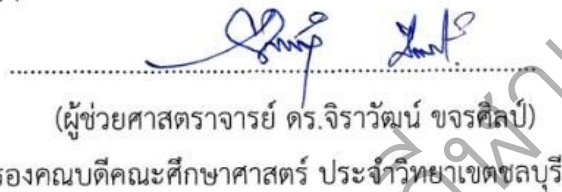 (ผู้ช่วยศาสตราจารย์ ดร.จิราวัฒน์ ขจรศิลป์)
รองคณบดีคณะศึกษาศาสตร์ ประจำวิทยาเขตชลบุรี